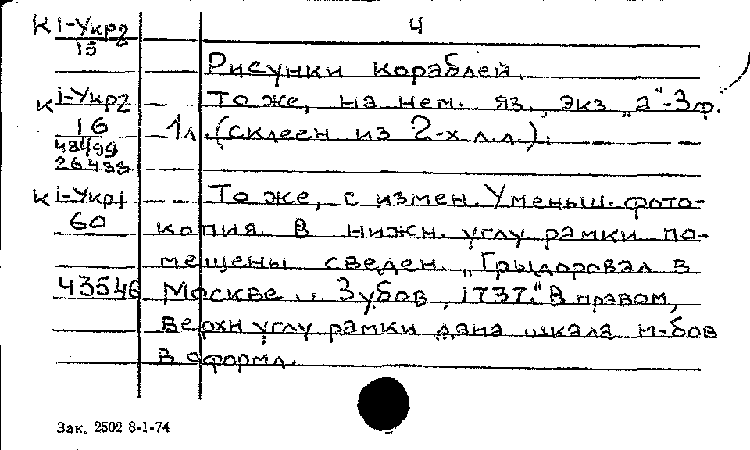 К 1-Укр2 4
15
Рисунки кораблей.
К 1-Укр2 — То же, на нем. яз., экз „а"-Зф.
16 1л. (склеен из 2-х л.л.).
48499
26488
К 1-Укр1 — — То же, с измен. Уменьш. фото-
60 копия. В нижн. углу рамки по-
мещены сведен. „Грыдоровал в
43546 Москве .. Зубов, 1737." В правом,
верхн углу рамки дана шкала м-бов
в оформл.
Зак. 2502 8-1-74